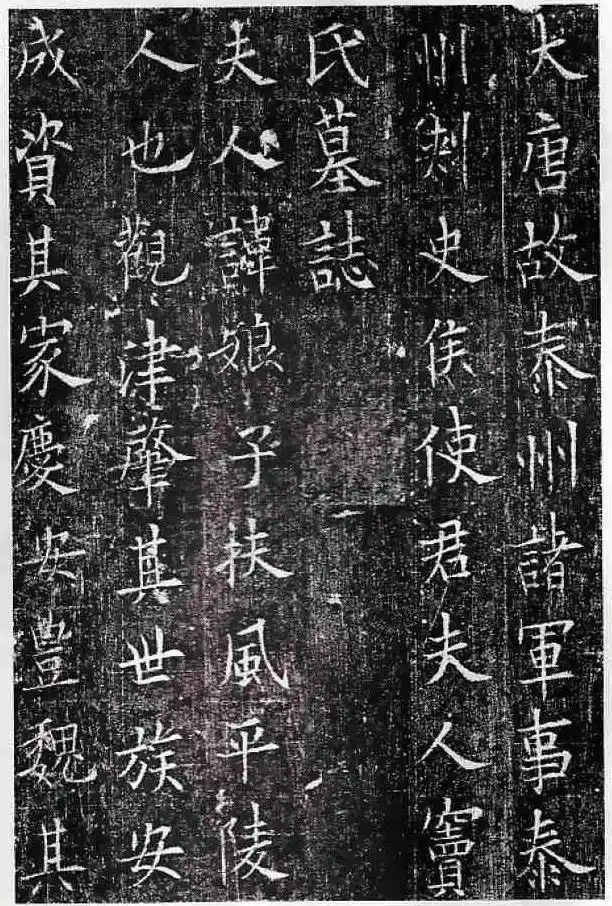 大唐故泰州諸軍事泰
州刺史侯使君夫人竇
氏墓誌
夫人諱娘子扶風平陵
人也觀津肇其世族安
成資其家慶安豊魏其